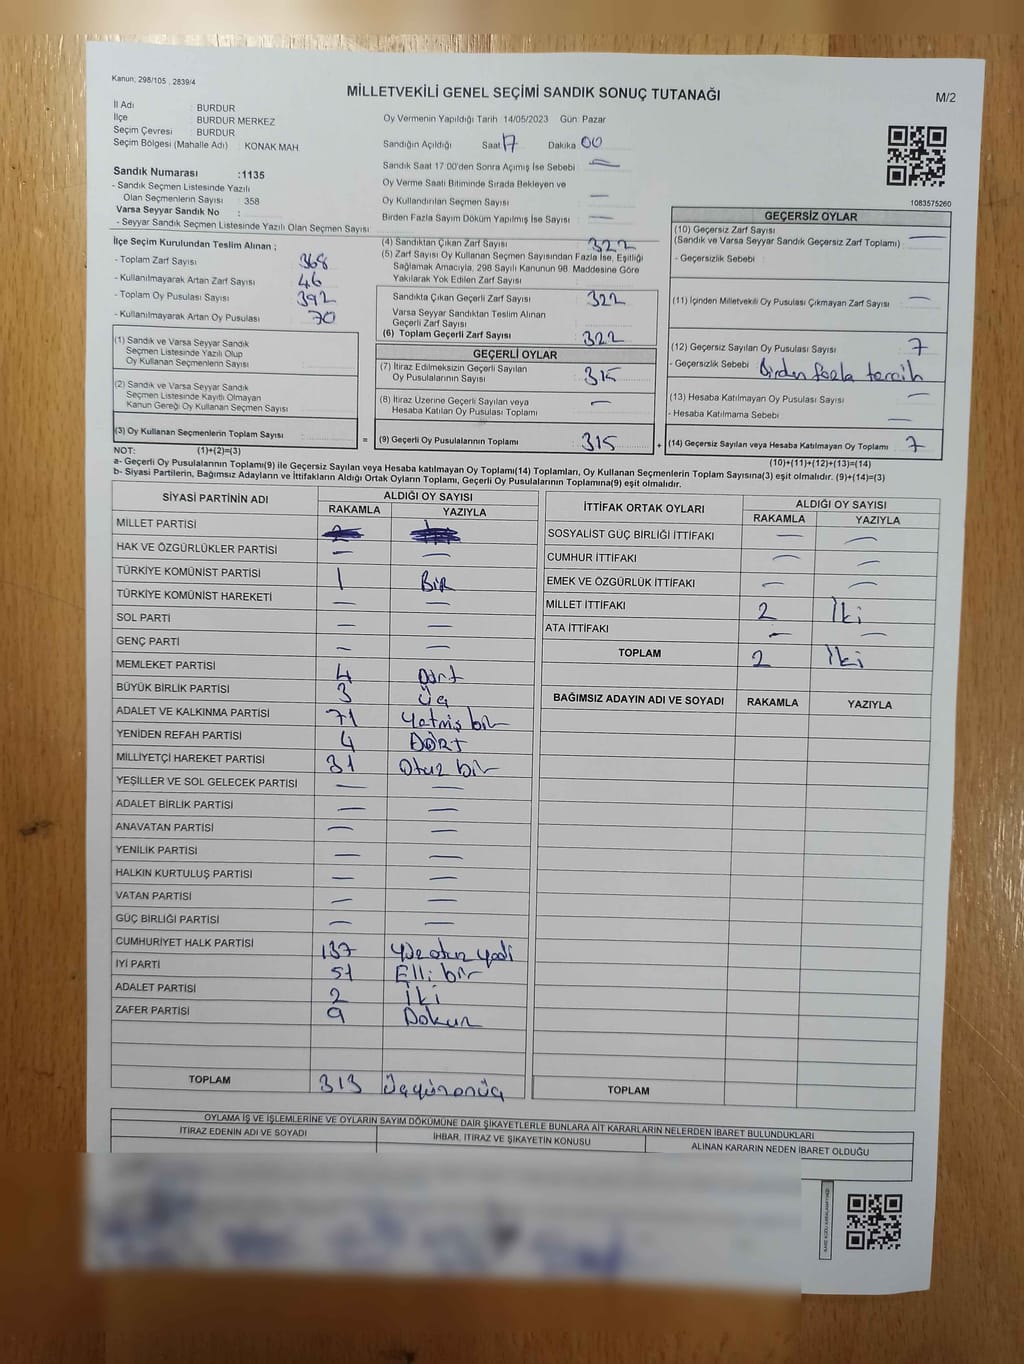 Kanun; 298/105 , 2839/4
MİLLETVEKİLİ GENEL SEÇİMİ SANDIK SONUÇ TUTANAĞI
M/2
İl Adı : BURDUR
İlçe : BURDUR MERKEZ
Seçim Çevresi : BURDUR
Seçim Bölgesi (Mahalle Adı) : KONAK MAH
Sandık Numarası :1135
- Sandık Seçmen Listesinde Yazılı
Olan Seçmenlerin Sayısı : 358
Varsa Seyyar Sandık No :
- Seyyar Sandık Seçmen Listesinde Yazılı Olan Seçmen Sayısı :
Oy Vermenin Yapıldığı Tarih 14/05/2023 Gün: Pazar
Sandığın Açıldığı Saat 17 Dakika 00
Sandık Saat 17:00'den Sonra Açımış İse Sebebi —
Oy Verme Saati Bitiminde Sırada Bekleyen ve
Oy Kullandırılan Seçmen Sayısı —
Birden Fazla Sayım Döküm Yapılmış İse Sayısı —
1083575260
İlçe Seçim Kurulundan Teslim Alınan ;
- Toplam Zarf Sayısı 368
- Kullanılmayarak Artan Zarf Sayısı 46
- Toplam Oy Pusulası Sayısı 392
- Kullanılmayarak Artan Oy Pusulası 70
(1) Sandık ve Varsa Seyyar Sandık
Seçmen Listesinde Yazılı Olup
Oy Kullanan Seçmenlerin Sayısı
(2) Sandık ve Varsa Seyyar Sandık
Seçmen Listesinde Kayıtlı Olmayan
Kanun Gereği Oy Kullanan Seçmen Sayısı
(3) Oy Kullanan Seçmenlerin Toplam Sayısı =
(4) Sandıktan Çıkan Zarf Sayısı 322
(5) Zarf Sayısı Oy Kullanan Seçmen Sayısından Fazla İse, Eşitliği
Sağlamak Amacıyla, 298 Sayılı Kanunun 98. Maddesine Göre
Yakılarak Yok Edilen Zarf Sayısı
Sandıkta Çıkan Geçerli Zarf Sayısı 322
Varsa Seyyar Sandıktan Teslim Alınan
Geçerli Zarf Sayısı
(6) Toplam Geçerli Zarf Sayısı 322
GEÇERLİ OYLAR
(7) İtiraz Edilmeksizin Geçerli Sayılan
Oy Pusulalarının Sayısı 315
(8) İtiraz Üzerine Geçerli Sayılan veya
Hesaba Katılan Oy Pusulası Toplamı —
(9) Geçerli Oy Pusulalarının Toplamı 315 +
GEÇERSİZ OYLAR
(10) Geçersiz Zarf Sayısı
(Sandık ve Varsa Seyyar Sandık Geçersiz Zarf Toplamı) —
- Geçersizlik Sebebi :
(11) İçinden Milletvekili Oy Pusulası Çıkmayan Zarf Sayısı —
(12) Geçersiz Sayılan Oy Pusulası Sayısı 7
- Geçersizlik Sebebi Birden fazla tercih
(13) Hesaba Katılmayan Oy Pusulası Sayısı —
- Hesaba Katılmama Sebebi : —
(14) Geçersiz Sayılan veya Hesaba Katılmayan Oy Toplamı 7
NOT: (1)+(2)=(3) (10)+(11)+(12)+(13)=(14)
a- Geçerli Oy Pusulalarının Toplamı(9) ile Geçersiz Sayılan veya Hesaba katılmayan Oy Toplamı(14) Toplamları, Oy Kullanan Seçmenlerin Toplam Sayısına(3) eşit olmalıdır. (9)+(14)=(3)
b- Siyasi Partilerin, Bağımsız Adayların ve İttifakların Aldığı Ortak Oyların Toplamı, Geçerli Oy Pusulalarının Toplamına(9) eşit olmalıdır.
SİYASİ PARTİNİN ADI ALDIĞI OY SAYISI
RAKAMLA YAZIYLA
MİLLET PARTİSİ
HAK VE ÖZGÜRLÜKLER PARTİSİ — —
TÜRKİYE KOMÜNİST PARTİSİ 1 Bir
TÜRKİYE KOMÜNİST HAREKETİ — —
SOL PARTİ — —
GENÇ PARTİ — —
MEMLEKET PARTİSİ 4 Dört
BÜYÜK BİRLİK PARTİSİ 3 Üç
ADALET VE KALKINMA PARTİSİ 71 Yetmiş bir
YENİDEN REFAH PARTİSİ 4 DÖRT
MİLLİYETÇİ HAREKET PARTİSİ 31 Otuz bir
YEŞİLLER VE SOL GELECEK PARTİSİ — —
ADALET BİRLİK PARTİSİ — —
ANAVATAN PARTİSİ — —
YENİLİK PARTİSİ — —
HALKIN KURTULUŞ PARTİSİ — —
VATAN PARTİSİ — —
GÜÇ BİRLİĞİ PARTİSİ — —
CUMHURİYET HALK PARTİSİ 137 Yüz otuz yedi
İYİ PARTİ 51 Elli bir
ADALET PARTİSİ 2 İki
ZAFER PARTİSİ 9 Dokuz
TOPLAM 313 Üçyüzonüç
İTTİFAK ORTAK OYLARI ALDIĞI OY SAYISI
RAKAMLA YAZIYLA
SOSYALİST GÜÇ BİRLİĞİ İTTİFAKI — —
CUMHUR İTTİFAKI — —
EMEK VE ÖZGÜRLÜK İTTİFAKI — —
MİLLET İTTİFAKI 2 İki
ATA İTTİFAKI — —
TOPLAM 2 İki
BAĞIMSIZ ADAYIN ADI VE SOYADI RAKAMLA YAZIYLA
TOPLAM
OYLAMA İŞ VE İŞLEMLERİNE VE OYLARIN SAYIM DÖKÜMÜNE DAİR ŞİKAYETLERLE BUNLARA AİT KARARLARIN NELERDEN İBARET BULUNDUKLARI
İTİRAZ EDENİN ADI VE SOYADI İHBAR, İTİRAZ VE ŞİKAYETİN KONUSU ALINAN KARARIN NEDEN İBARET OLDUĞU